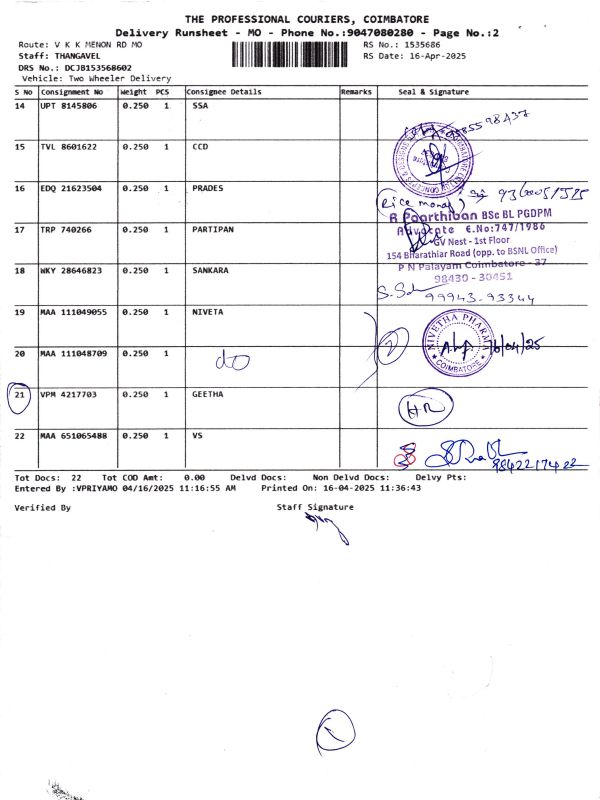 THE PROFESSIONAL COURIERS, COIMBATORE
Delivery Runsheet - MO - Phone No.:9047080280 - Page No.:2
Route: V K K MENON RD MO RS No.: 1535686
Staff: THANGAVEL RS Date: 16-Apr-2025
DRS No.: DCJB153568602
Vehicle: Two Wheeler Delivery
S No Consignment No Weight PCS Consignee Details Remarks Seal & Signature
14 UPT 8145806 0.250 1 SSA
15 TVL 8601622 0.250 1 CCD
16 EDQ 21623504 0.250 1 PRADES
(Rice mondy)
17 TRP 740266 0.250 1 PARTIPAN
R Paarthiban BSc BL PGDPM
Advocate E.No:747/1986
GV Nest - 1st Floor
154 Bharathiar Road (opp. to BSNL Office)
P N Palayam Coimbatore - 37
98430 - 30451
18 WKY 28646823 0.250 1 SANKARA
99943-93344
19 MAA 111049055 0.250 1 NIVETA
NIVETHA PHARMA
COIMBATORE
16/04/25
2
20 MAA 111048709 0.250 1 do
21 VPM 4217703 0.250 1 GEETHA
HR
22 MAA 651065488 0.250 1 VS
9842217422
Tot Docs: 22 Tot COD Amt: 0.00 Delvd Docs: Non Delvd Docs: Delvy Pts:
Entered By :VPRIYAMO 04/16/2025 11:16:55 AM Printed On: 16-04-2025 11:36:43
Verified By Staff Signature